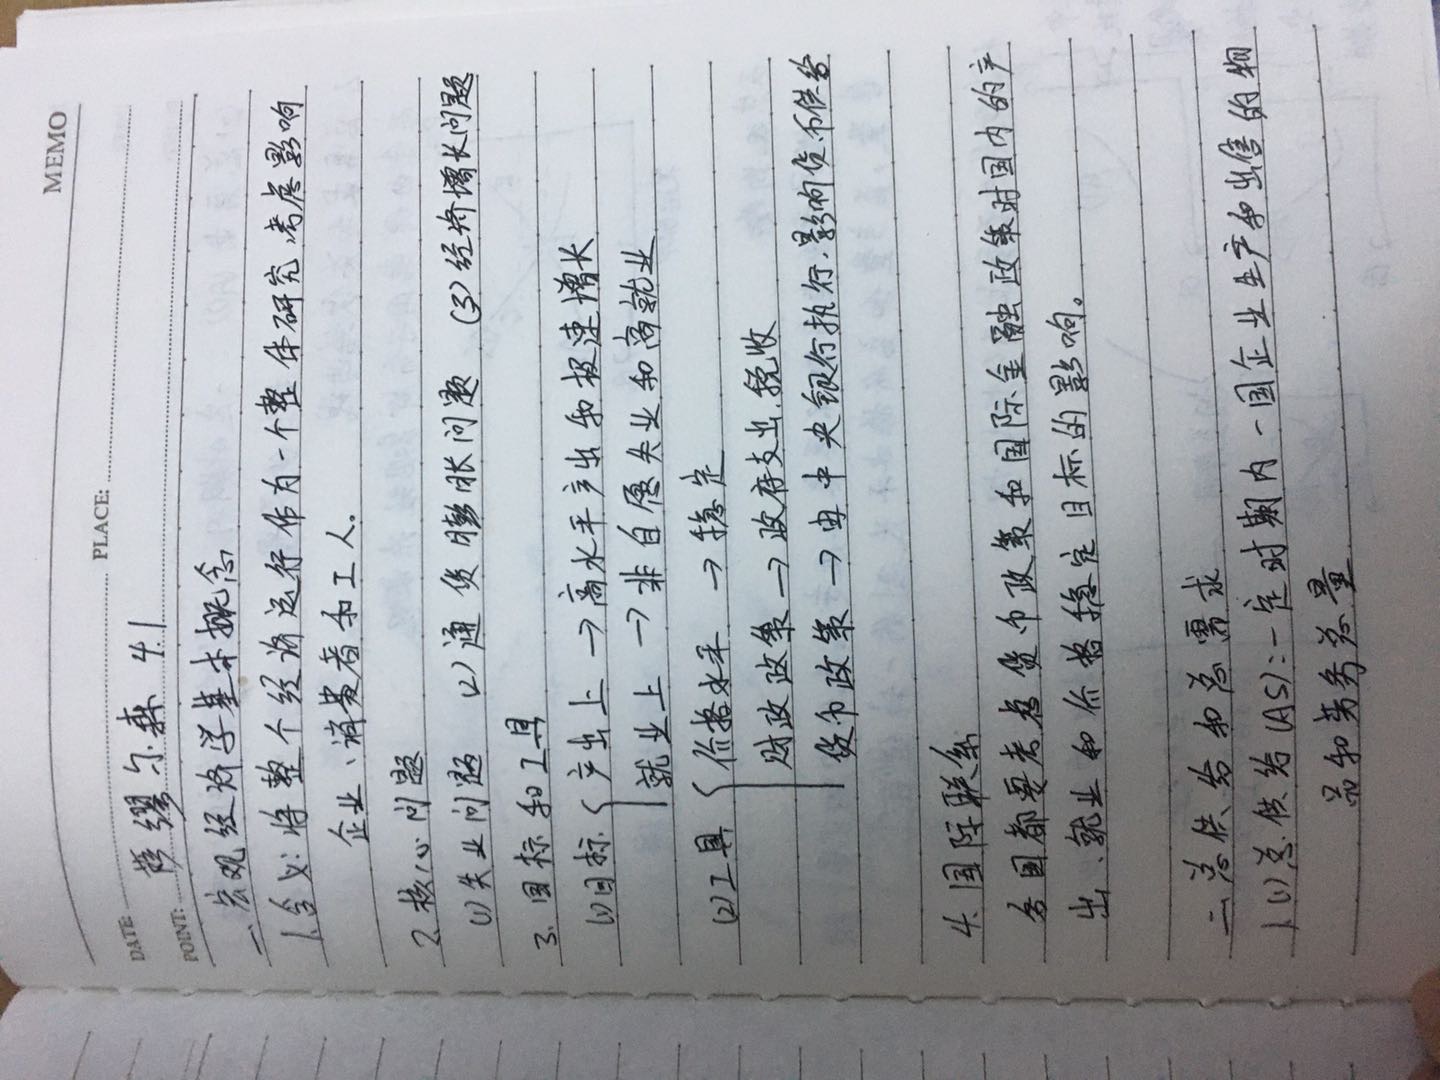 MEMO
DATE: PLACE:
萨缪尔森 4.1
POINT:
一、宏观经济学基本概念
1.含义:将整个经济运行作为一个整体研究,考虑影响
企业、消费者和工人。
2.核心问题
(1)失业问题 (2)通货膨胀问题 (3)经济增长问题
3.目标和工具
(1)目标 产出上→高水平产出和极速增长
就业上→非自愿失业和高就业
(2)工具 价格水平→稳定
财政政策→政府支出、税收
货币政策→由中央银行执行,影响货币供给
4.国际联系
各国都要考虑货币政策和国际金融政策对国内的产
出、就业和价格稳定目标的影响。
二、总供给和总需求
1.(1)总供给(AS):一定时期内一国企业生产和出售的物
品和劳务总量